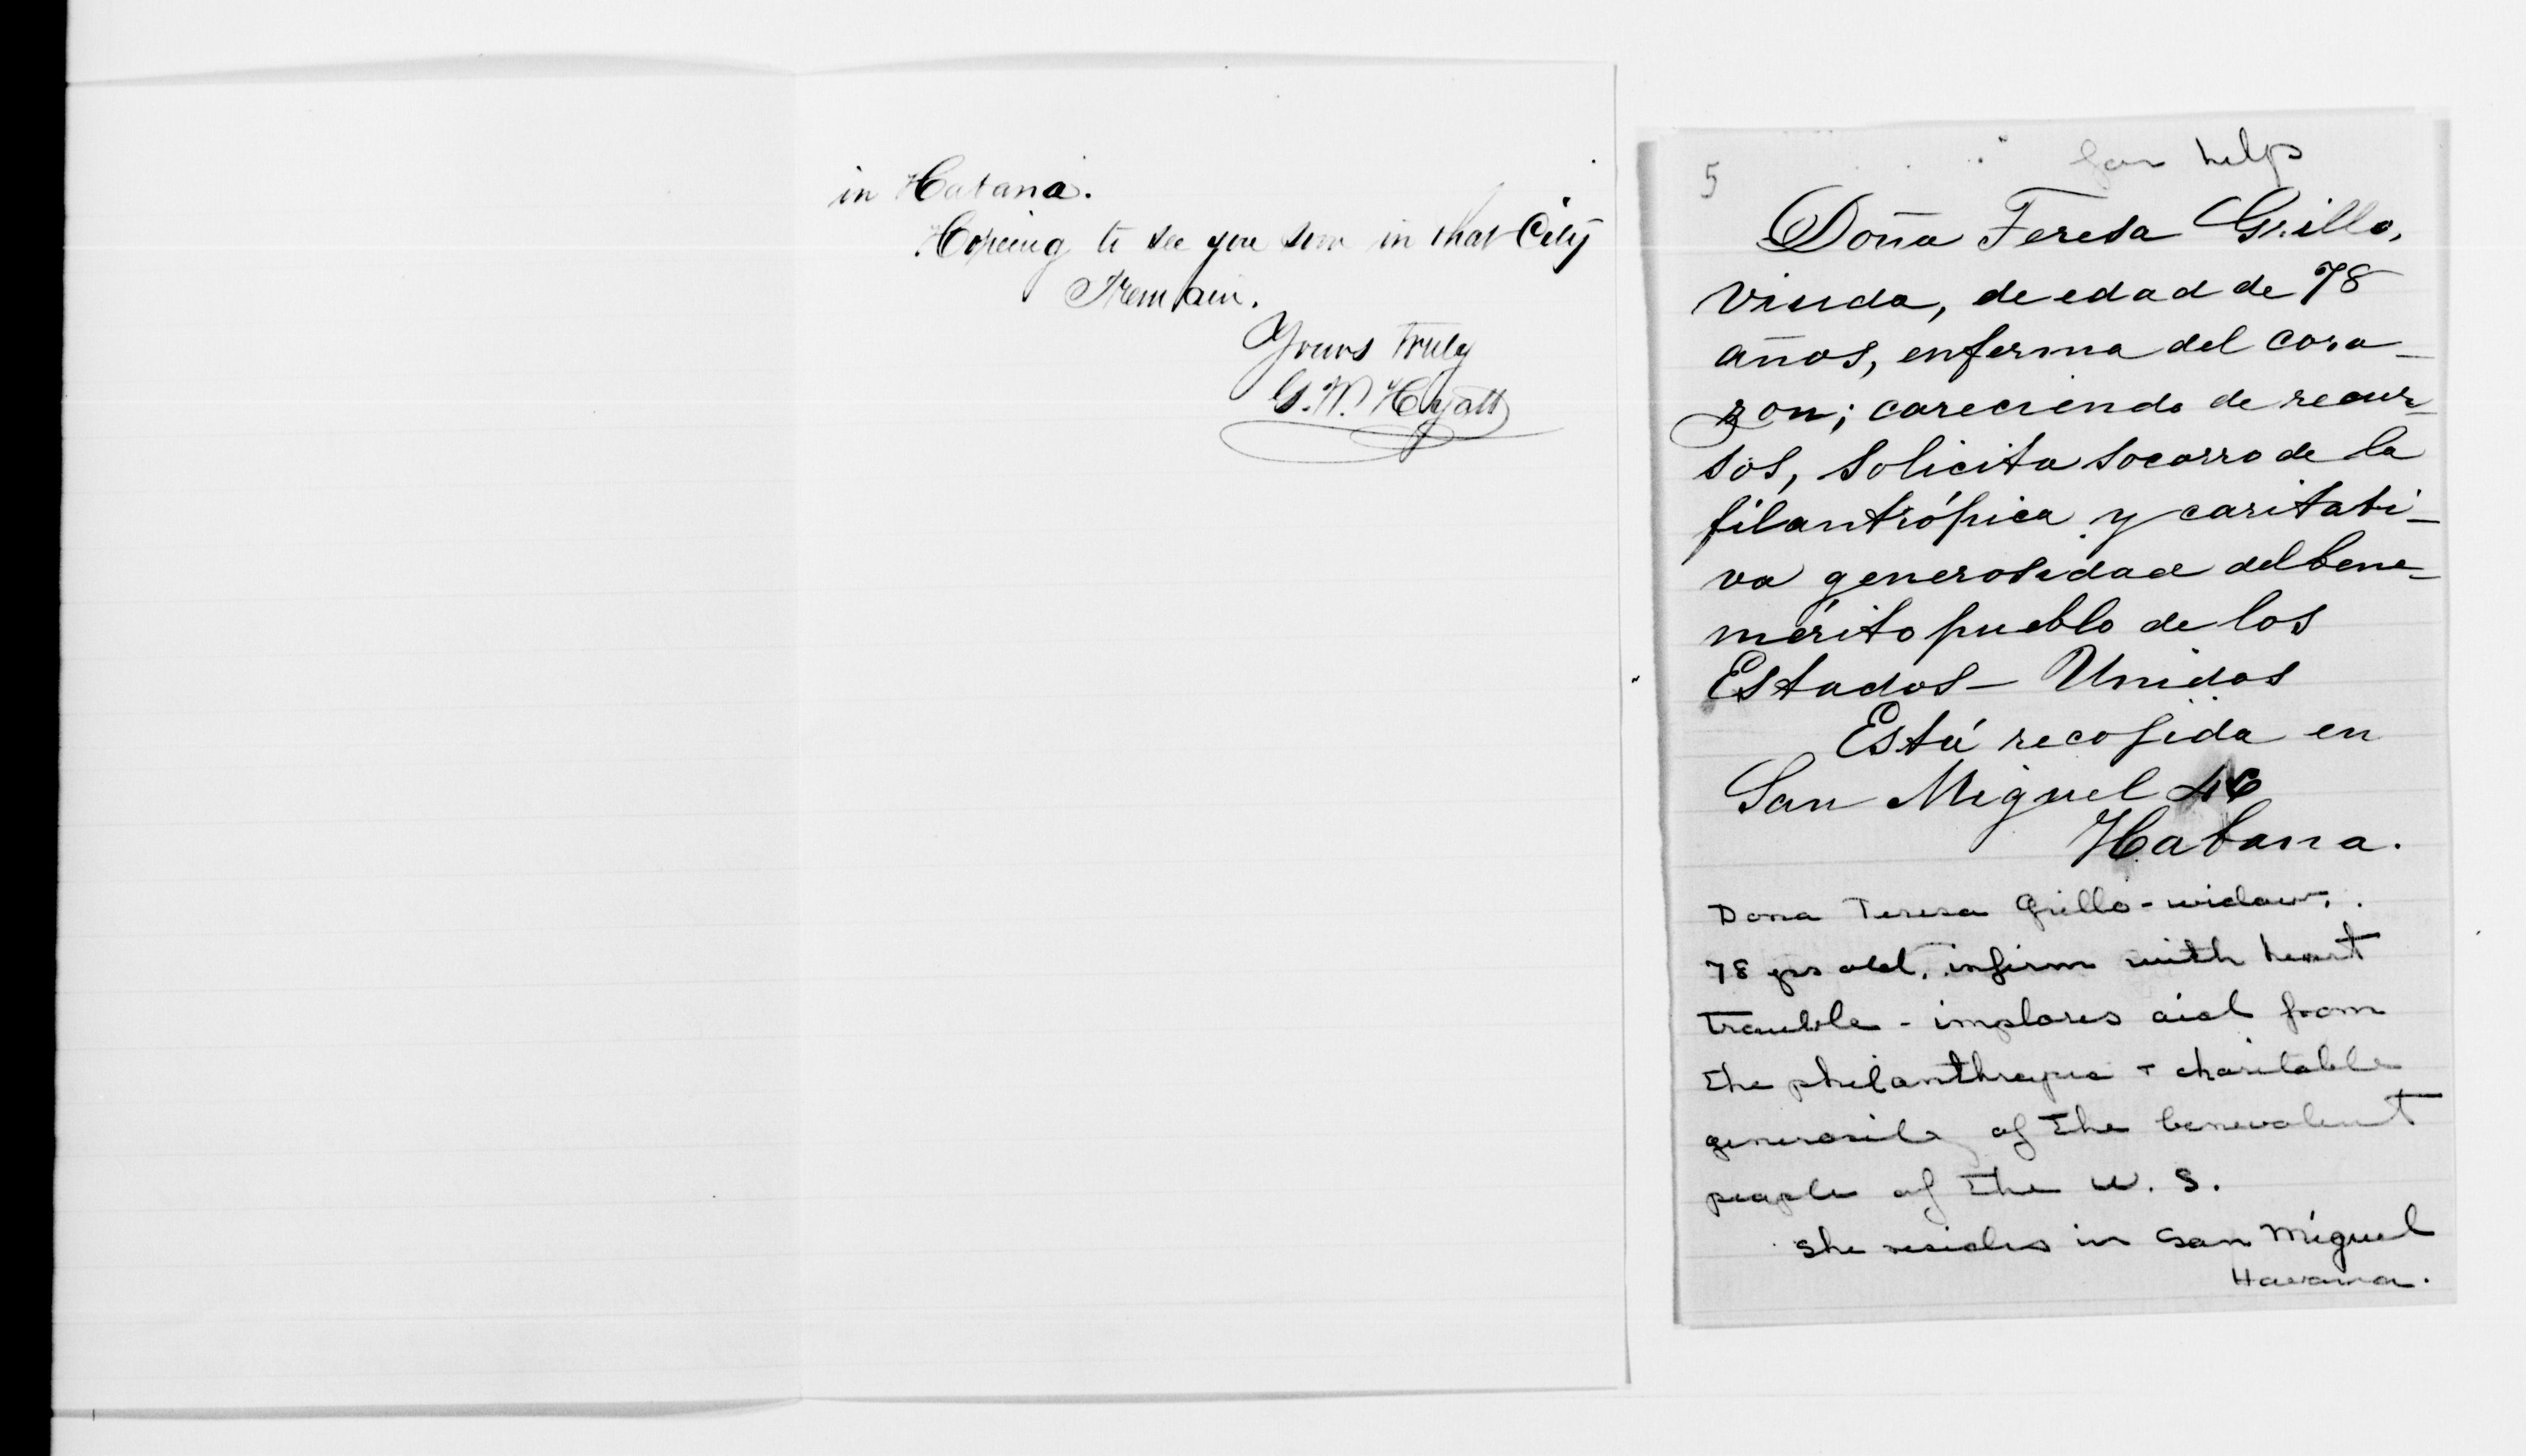 in Havana.
Hoping to see you soon in that City
I remain.
Yours truly
G. W. Hyatt
5
for help
Doña Teresa Grillo,
viuda, de edad de 78
años, enferma del cora-
zon; careciendo de recur-
sos, solicita socorro de la
filantrópica y caritati-
va generosidad del bene-
mérito pueblo de los
Estados-Unidos
Está recojida en
San Miguel 46
Habana.
Dona Teresa Grillo - widow,
78 yrs old, infirm with heart
trouble - implores aid from
the philanthropic + charitable
generosity of the benevolent
people of the U. S.
She resides in San Miguel
Havana.